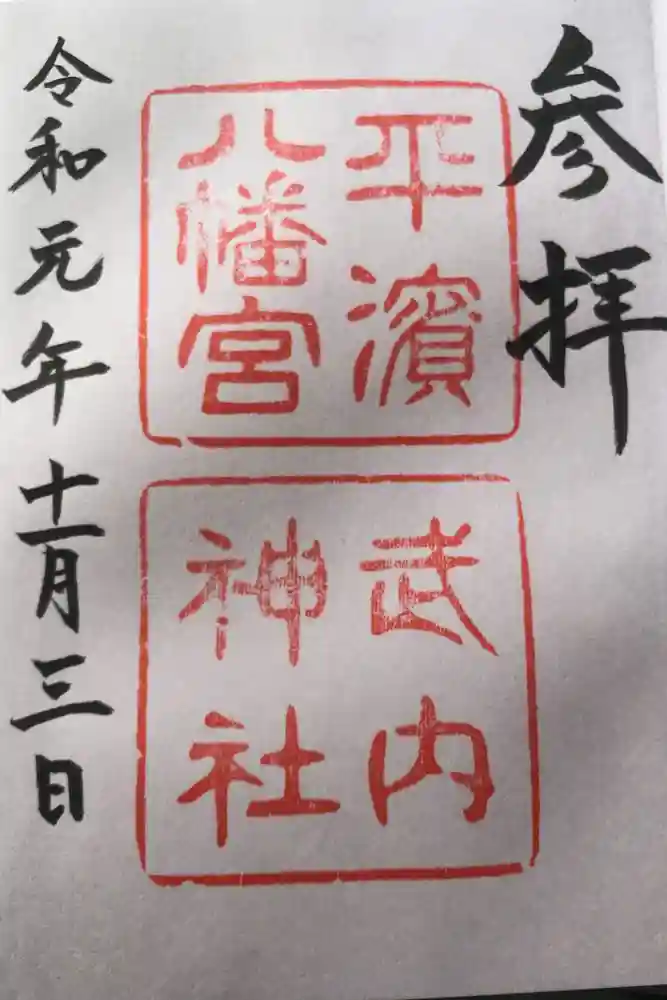 参拝
平濱
八幡宮
武内
神社
令和元年十一月三日